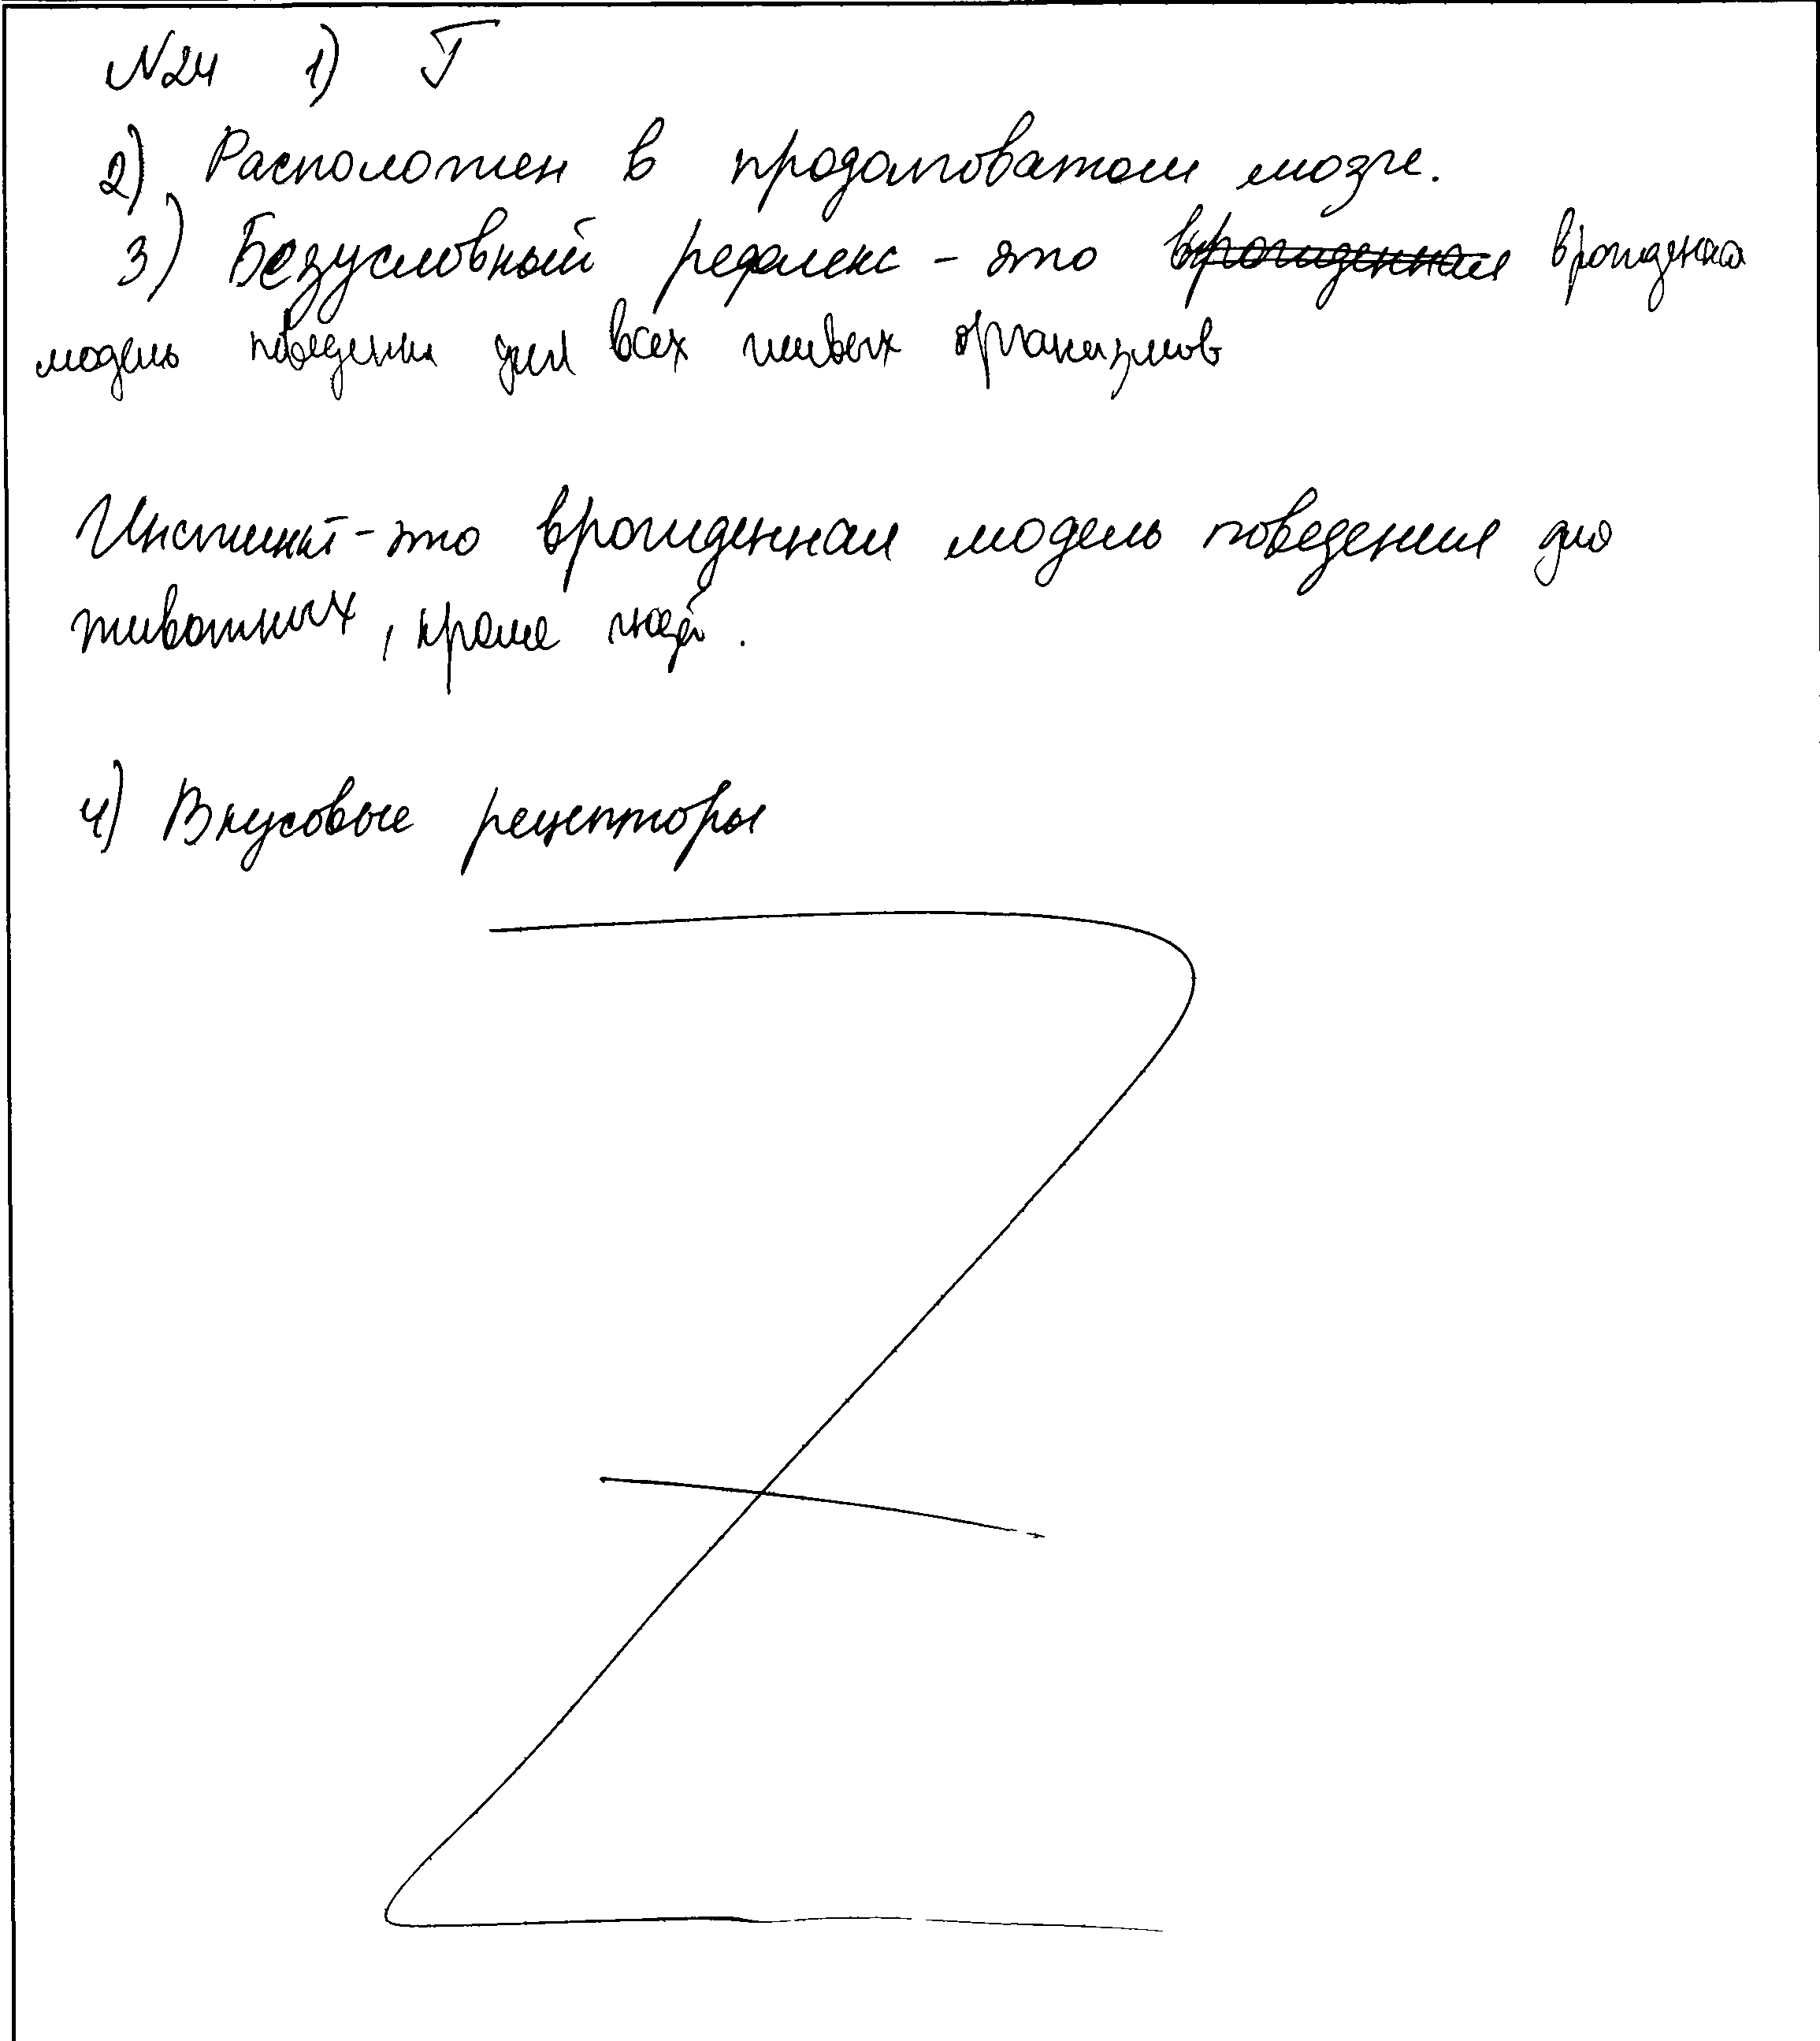 №24 1) Г
2) Расположен в продолговатом мозге.
3) Безусловный рефлекс - это врожденная врожденная
модель поведения для всех живых организмов
Инстинкт - это врожденная модель поведения для
животных, кроме людей.
4) Вкусовые рецепторы